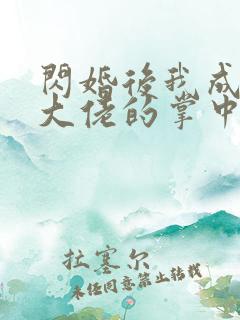 閃婚後我成
大佬的掌中
拉塞尔
未经同意禁止转载